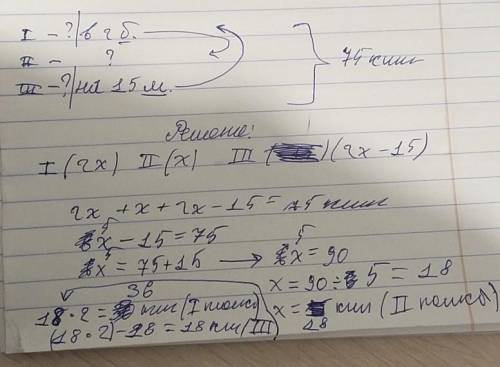 I - ? | в 2 б.
II - ?
III - ? | на 15 м.
75 книг
Решение:
I (2x) II (x) III (2x - 15)
2x + x + 2x - 15 = 75 книг
5x - 15 = 75
5x = 75 + 15 → 5x = 90
x = 90 : 5 = 18
x = 18 кн (II полка)
18 · 2 = 36 кни (I полка)
(18 · 2) - 18 = 18 кн (III)